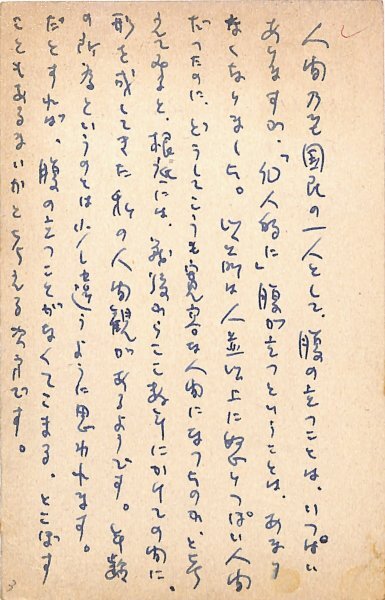 人間乃至国民の一人として、腹の立つことは、いっぱい
ありますが、「個人的に」腹が立つということは、あまり
なくなりました。以前は人並以上に怒りっぽい人間
だったのに、どうしてこうも寛容な人間になったのか、と考
えてみると、根底には、戦後からここ数年にかけての間に、
形を成してきた私の人間観があるようです。年齢
の所為というのとは少し違うように思われます。
だとすれば、腹の立つことがなくてこまる、とこぼす
こともあるまいかと考える次第です。